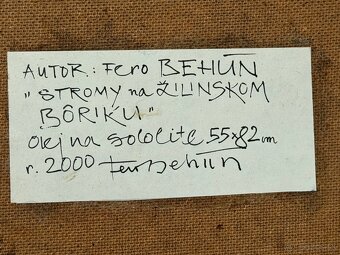 AUTOR.: Fero BEHÚN
"STROMY na ŽILINSKOM
BÔRIKU"
Olej na sololite 55x82 cm
r. 2000 Fero Behún